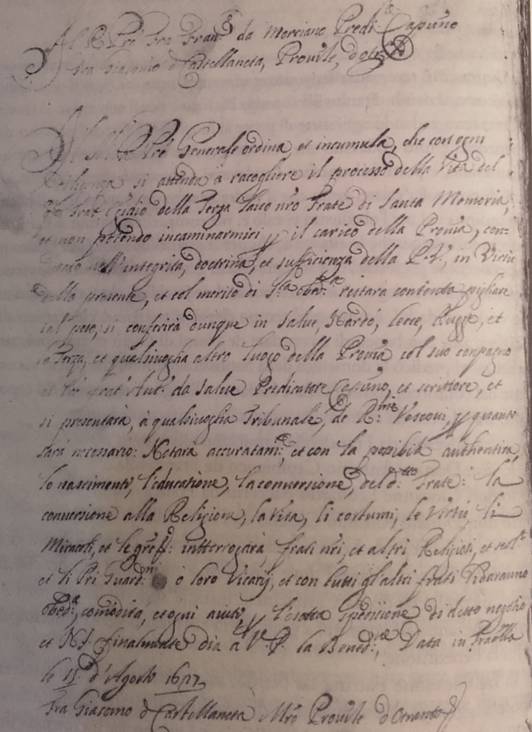 Al R. Prē fra Fran.º da Morciano Predi.re Capuc.no
fra Giacomo d Castellaneta, Prouīle, d
Il Prē Generale ordina et incumula, che con ogni
diligenza si attenda a racogliere il processo della Vita del
frat' Egidio della Terza laico nrō frate di Santa Memoria,
et non potendo incaminarmici p il carico della Prouīa, con-
nell'integrità, dottrina, et sufficienza della P.V., in Virtù
della presente, et col merito di S.ta Obed.a restarà contenta pigliare
tal peso, si conferirà dunque in Salue, Nardò, Lecce, Ruggie, et
la Terza, et qualsiuoglia altro luogo della Prouīa col suo conpagno
da Salue Predicatore Capuc.no, et scrittore, et
si presentarà, à qualsiuoglia Tribunale, de R.mi Vescoui, p quanto
sarà necessario: Notarà accuratam.te, et con la possibile authentica
lo nascimento, l'educatione, la conuersione, del d.tto frate: la
conuersione alla Religione, la vita, li costumi, le virtù, li
Miracoli, et le gr̄e: interrogarà, frati nrī, et altri Religiosi, et
et li Prī Guard.ni o loro Vicarij, et con tutti gl'altri frati li daranno
Obed.a, comodità, et ogni aiuto, p l'esatta speditione di detto negotio
et N.S. finalmente dia à V.P. la Bened.ne, Data in fracilla
le 11 d'Agosto 1617
fra Giacomo d Castellaneta Mrō Prouīle d Otranto